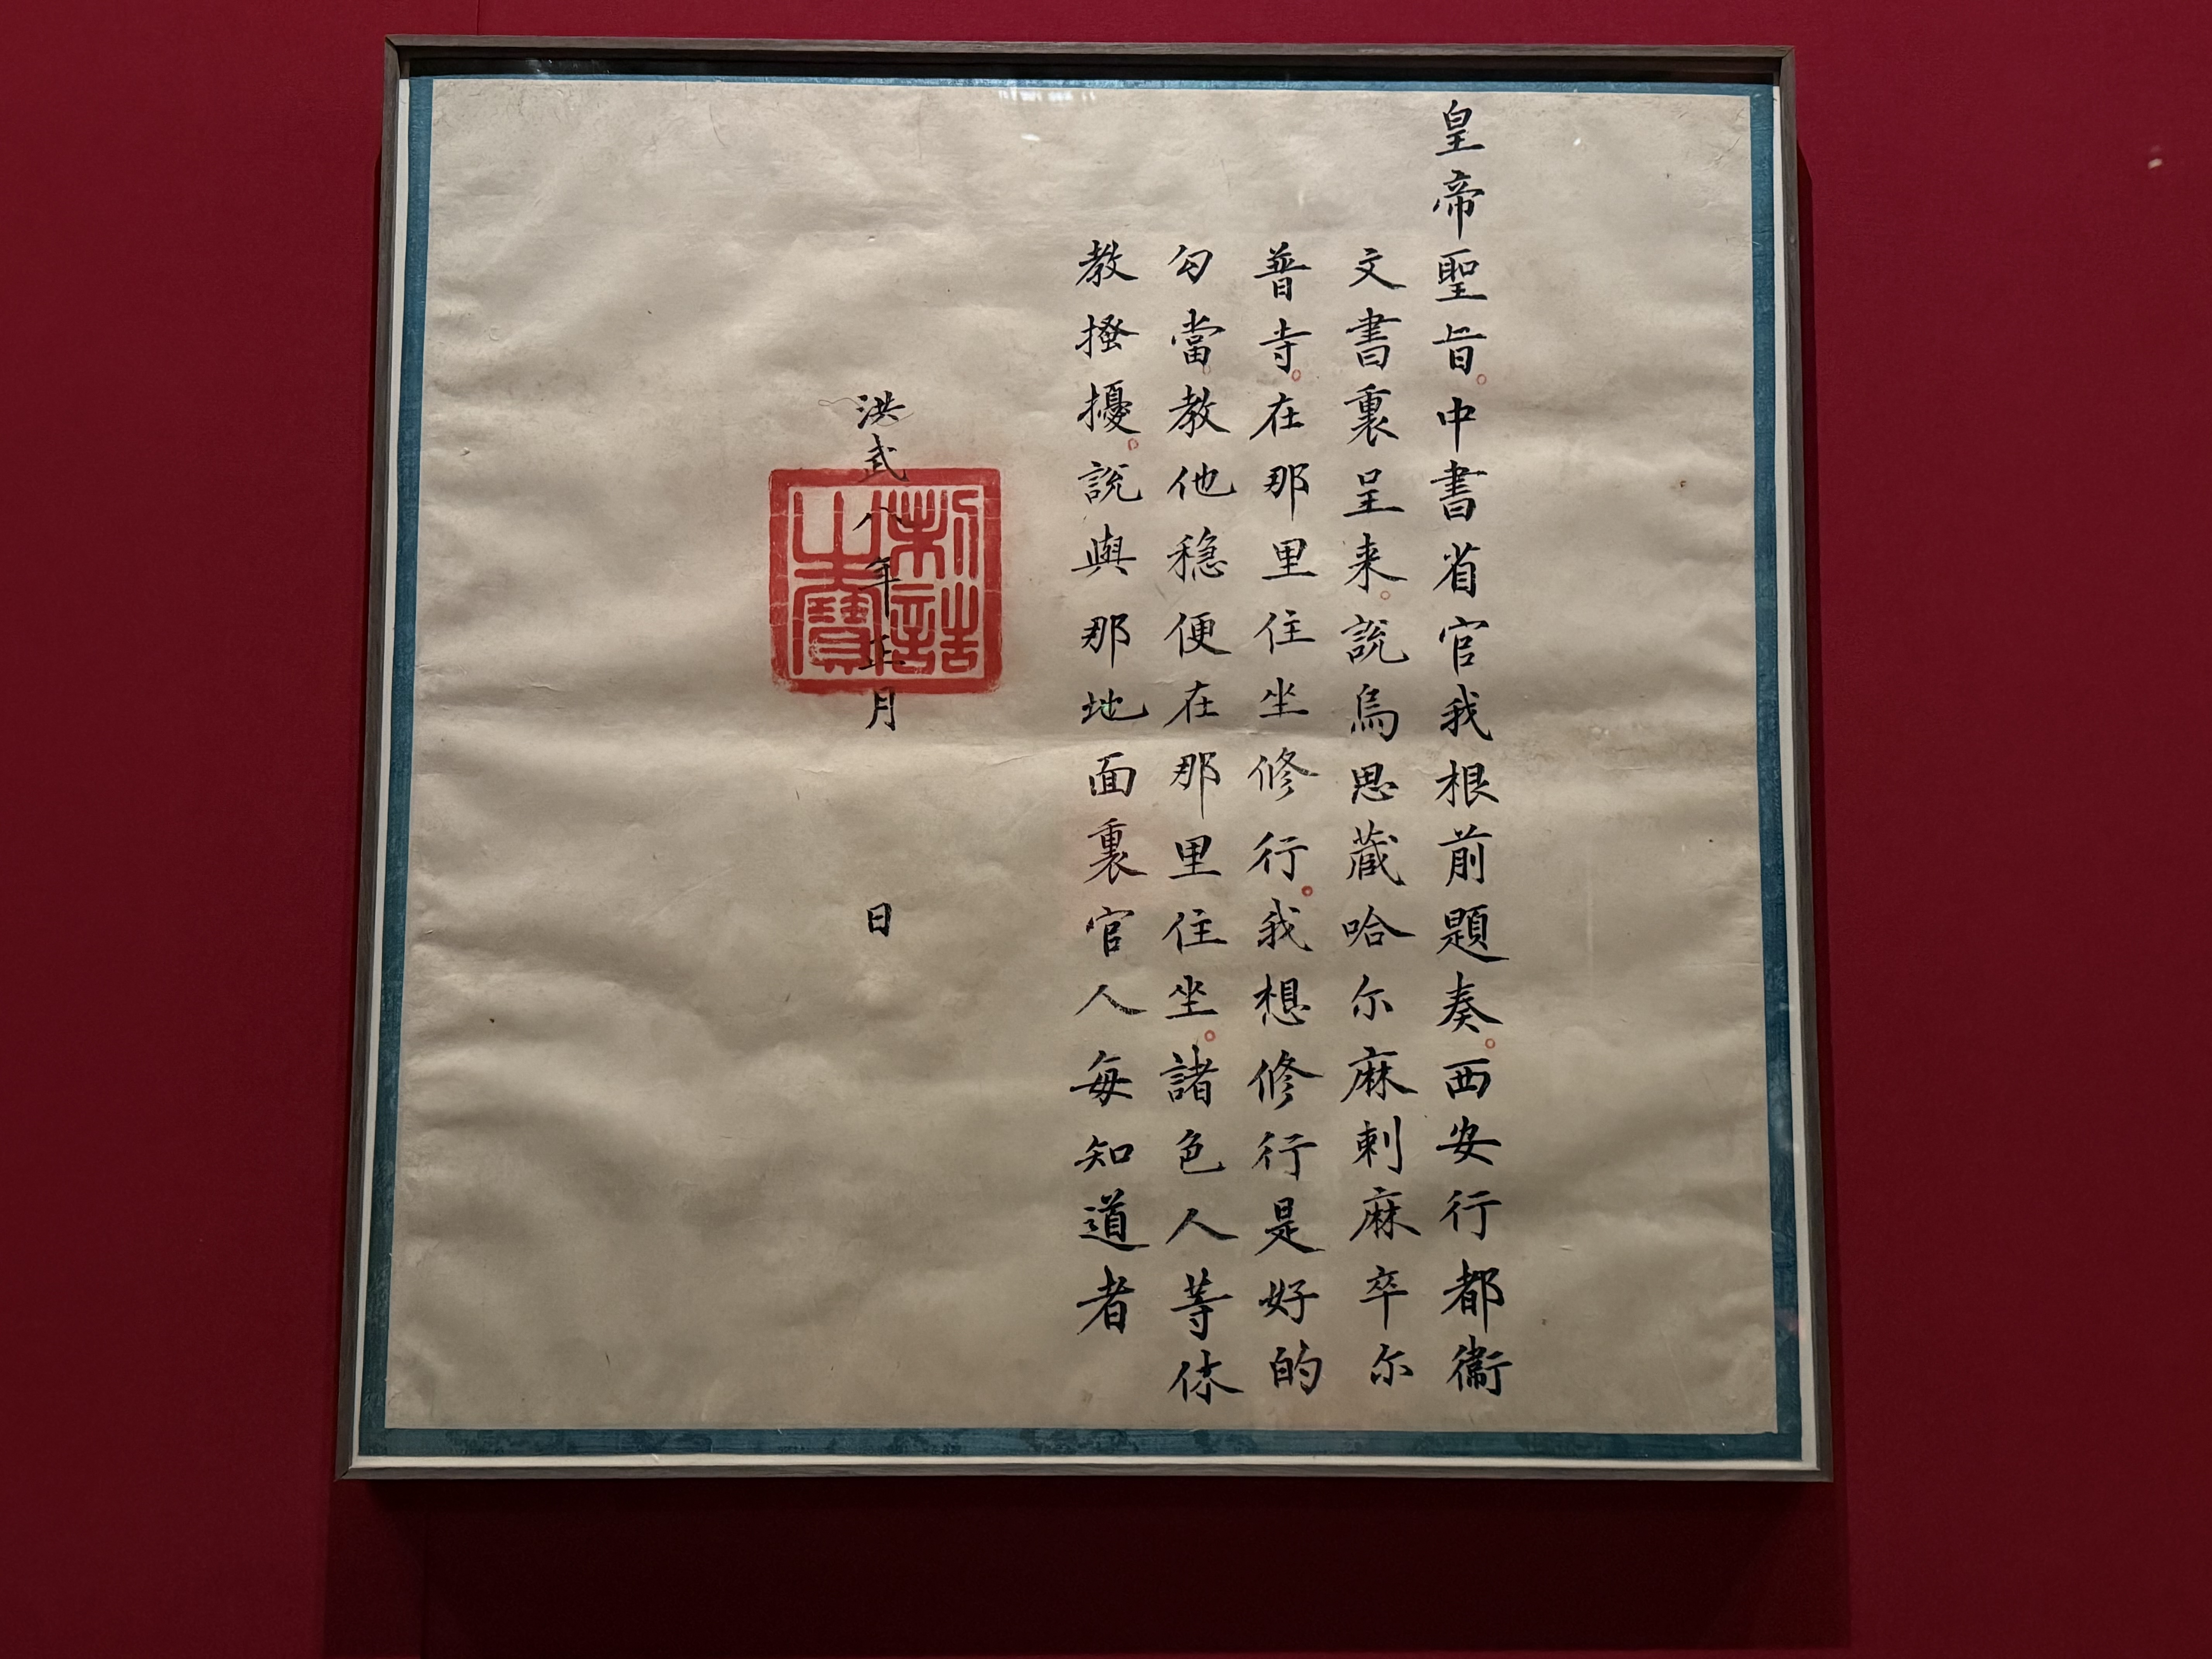 皇帝聖旨。中書省官我根前題奏。西安行都衞
文書裏呈来。說烏思藏哈尔麻剌麻卒尔
普寺。在那里住坐修行。我想修行是好的
勾當。教他穏便在那里住坐。諸色人等休
教搔擾。說與那地面裏官人每知道者
洪武八年正月 日
制誥之寶